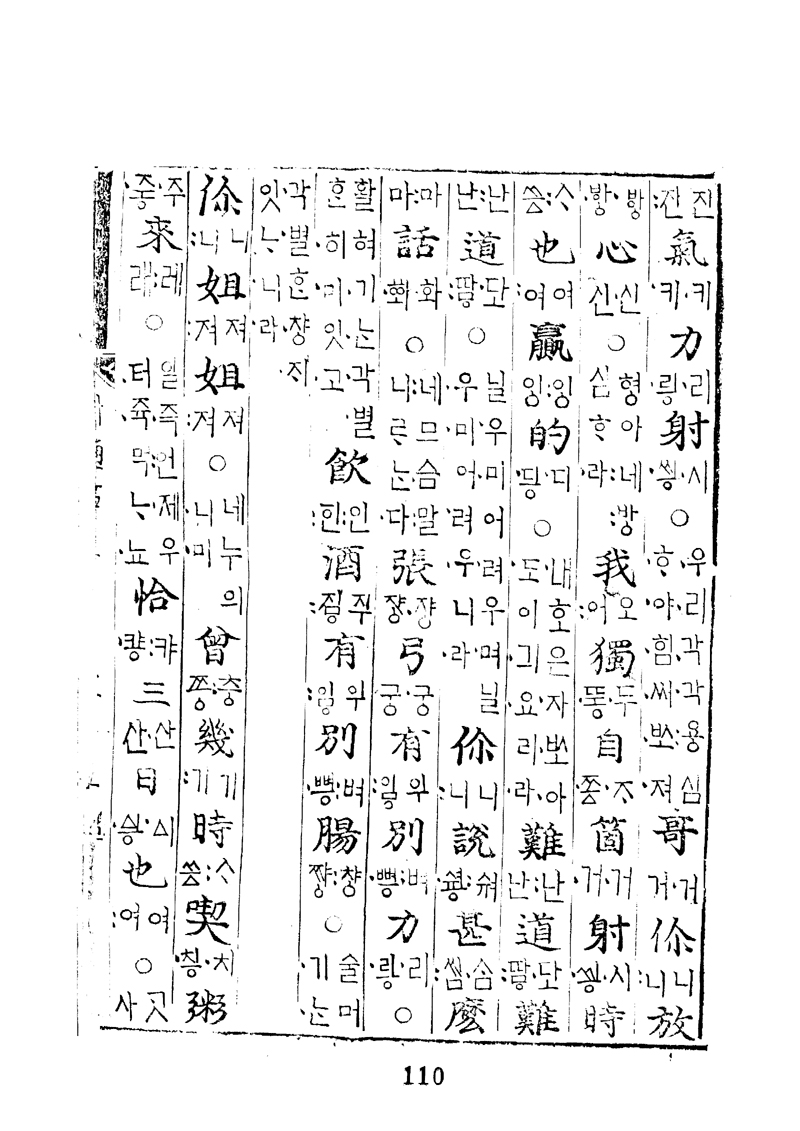 :진진氣·키·키力·릥·리射·씽·시○·우·리·각·각·용심·ᄒᆞ·야·힘·써·뽀·져哥거거你:니니放
·방·방心신신○형아·네:방심·ᄒᆞ·라我:어·오獨·똥·두自·ᄍᆞᆼ·ᄌᆞ箇·거·거射·씽·시時
쓩:스也:여여贏잉:잉的·딩·디○·내ᄒᆞ은·자·뽀·아도이·긔요리·라難난:난道:땋·단難
난:난道:땋·단○닐우·미어려우며닐우·미어·려·우니·라你:니니說·ᄉᆑᇙ·숴甚:씸·슴麼
마:마話·화·화○:네므·슴:말니ᄅᆞᄂᆞᆫ다張쟝쟝弓궁궁有:잉우別·뼝·벼力·릥·리○
활혀·기ᄂᆞᆫ·각별ᄒᆞᆫ·히·미잇·고飮:힌:인酒:즹쥐有:잉우別·뼝·벼腸쨩:챵○술머·기·ᄂᆞᆫ
·각·별ᄒᆞᆫ챵·ᄌᆡ잇·ᄂᆞ니·라
你:니니姐:져져姐:져져○:네누의니·미曾쯩:층幾:기기時쓩:스喫·칭·치粥
·쥼·주來래:레○일·즉:언·제우·터·쥭먹·ᄂᆞ·뇨恰·컁:캬三산산日·싱·시也:여여○ᄀᆞᆺ사
110